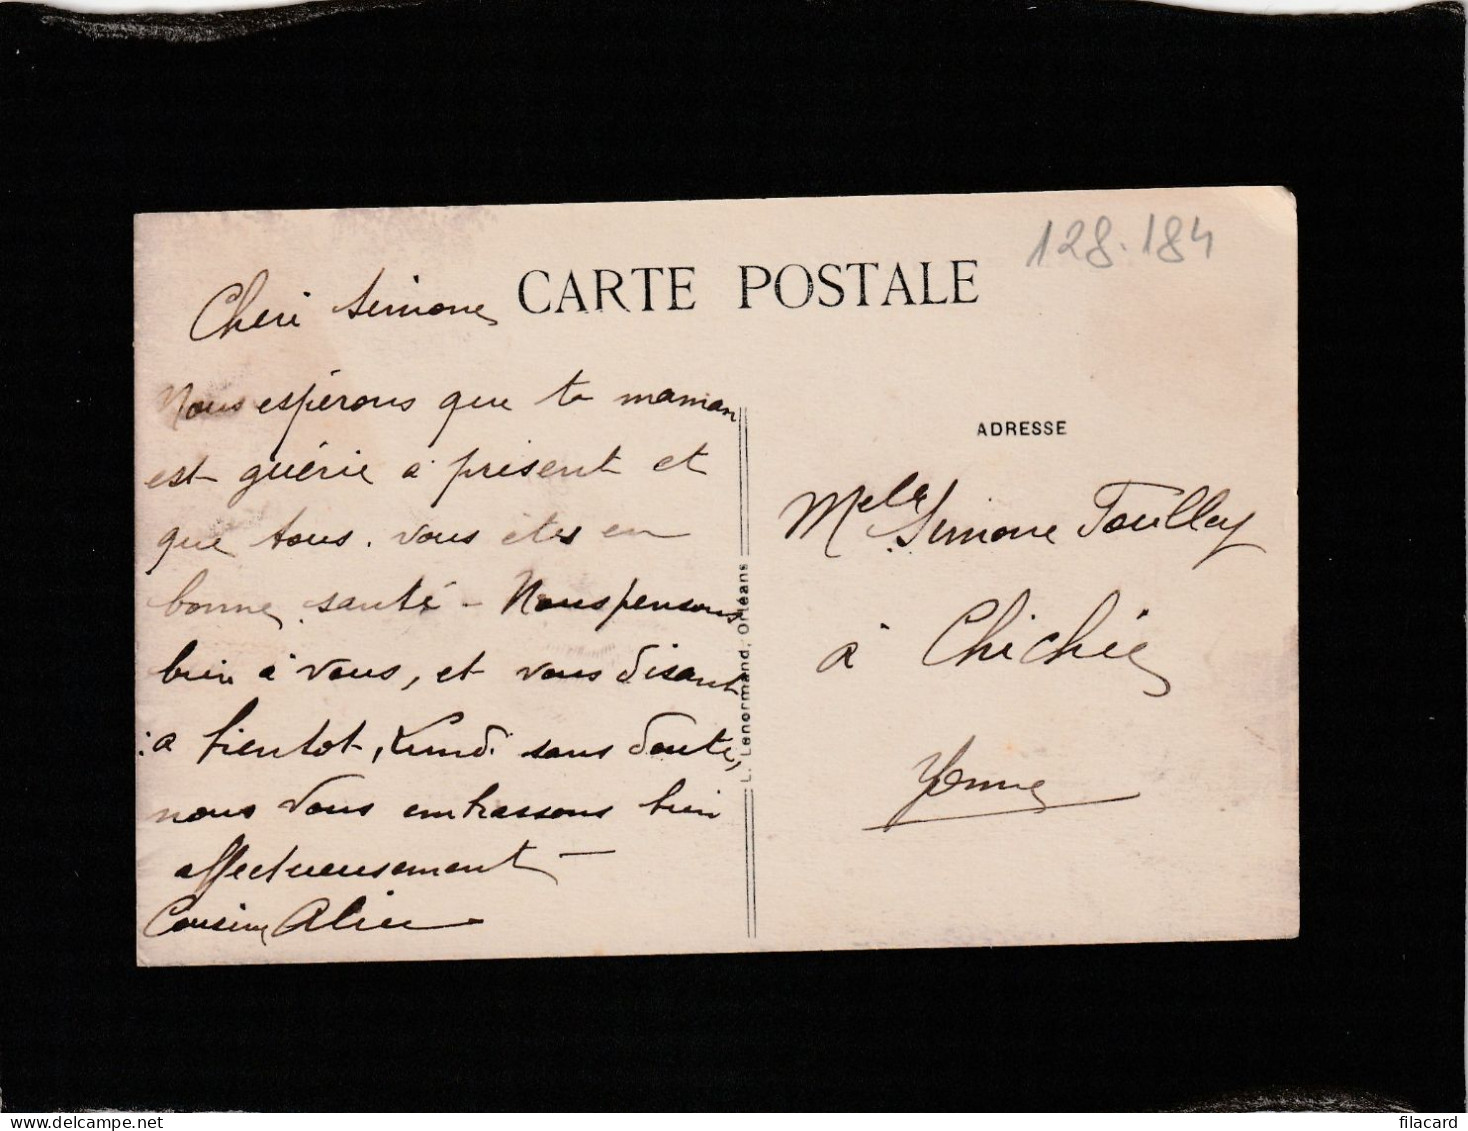 128.184
CARTE POSTALE
Cheri Simone
Nous espérons que ta maman
est guérie à présent et
que tous. vous êtes en
bonne santé - Nous pensons
bien à vous, et vous disant
à bientot, Lundi sans doute,
nous vous embrassons bien
affectueusement -
Cousine Alice
L. Lenormand, Orléans
ADRESSE
Melle Simone Toulley
à Chichée
Yonne
filacard